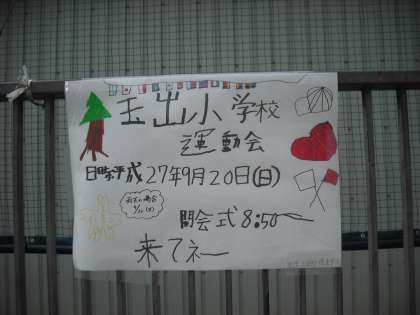 玉出小学校
運動会
日時:平成27年9月20日(日)
雨天の場合
開会式 8:50〜
来てネー